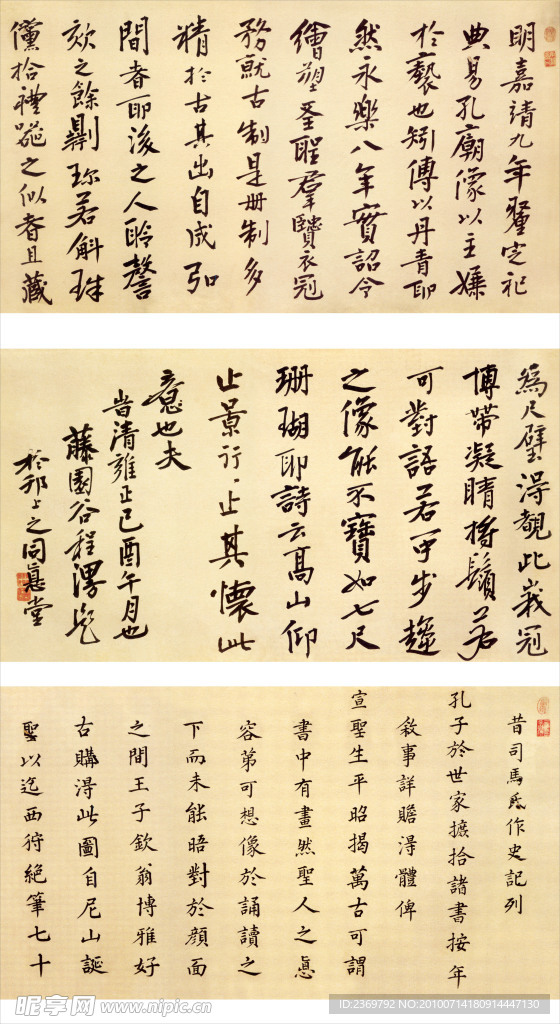 明嘉靖九年釐定祀
典易孔廟像以主嫌
於褻也矧傅以丹青耶
然永樂八年實詔令
繪塑聖賢羣賢衣冠
務就古制是册制多
精於古其出自咸弘
間者耶後之人聆謦
欬之餘剽珎若斛珠
儻拾禮器之似者且藏
為尺璧得覩此峩冠
博帶凝睛捋鬚若
可對語若可步趨
之像能不寶如七尺
珊瑚耶詩云高山仰
止景行行止其懷此
意也夫
旹清雍正己酉午月也
藤園谷程
於邗上之同
昔司馬氏作史記列
孔子於世家摭拾諸書按年
敘事詳贍得體俾
宣聖生平昭揭萬古可謂
書中有畫然聖人之惪
容第可想像於誦讀之
下而未能晤對於顔面
之間王子欽翁博雅好
古購得此圖自尼山誕
聖以迄西狩絶筆七十
昵享网 www.nipic.cn
ID:2369792 NO:20100714180914447130